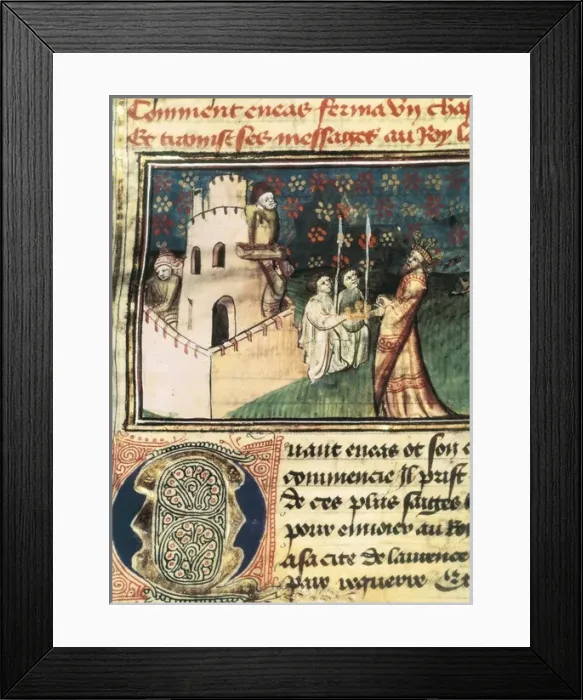 Comment eneas ferma vn chas
Et tramist ses messages au Roy la
Quant eneas ot son c
commencie Il prist
de ces plus saiges
pour enuoier au Ro
a sa cite de laurence
pour requerre Et